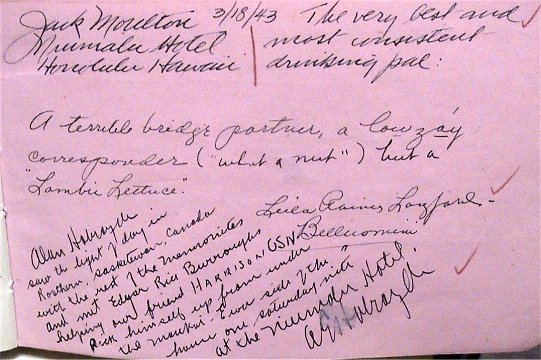 Jack Moulton 3/18/43
Niumalu Hotel
Honolulu Hawaii
The very best and
most consistent
drinking pal:
A terrible bridge partner, a lowzay
corresponder ("what a nut") but a
"Lambie Lettuce".
Belluomini
Alan Holroyde
saw the light of day in
Rosthern, Saskatewan, Canada
with the rest of the Mennonites
and met Edgar Rice Burroughs
helping our friend HARRISON USN
Pick himself up from under
the side of the
house one saturday nite
at the Niumalu Hotel.
Holroyde